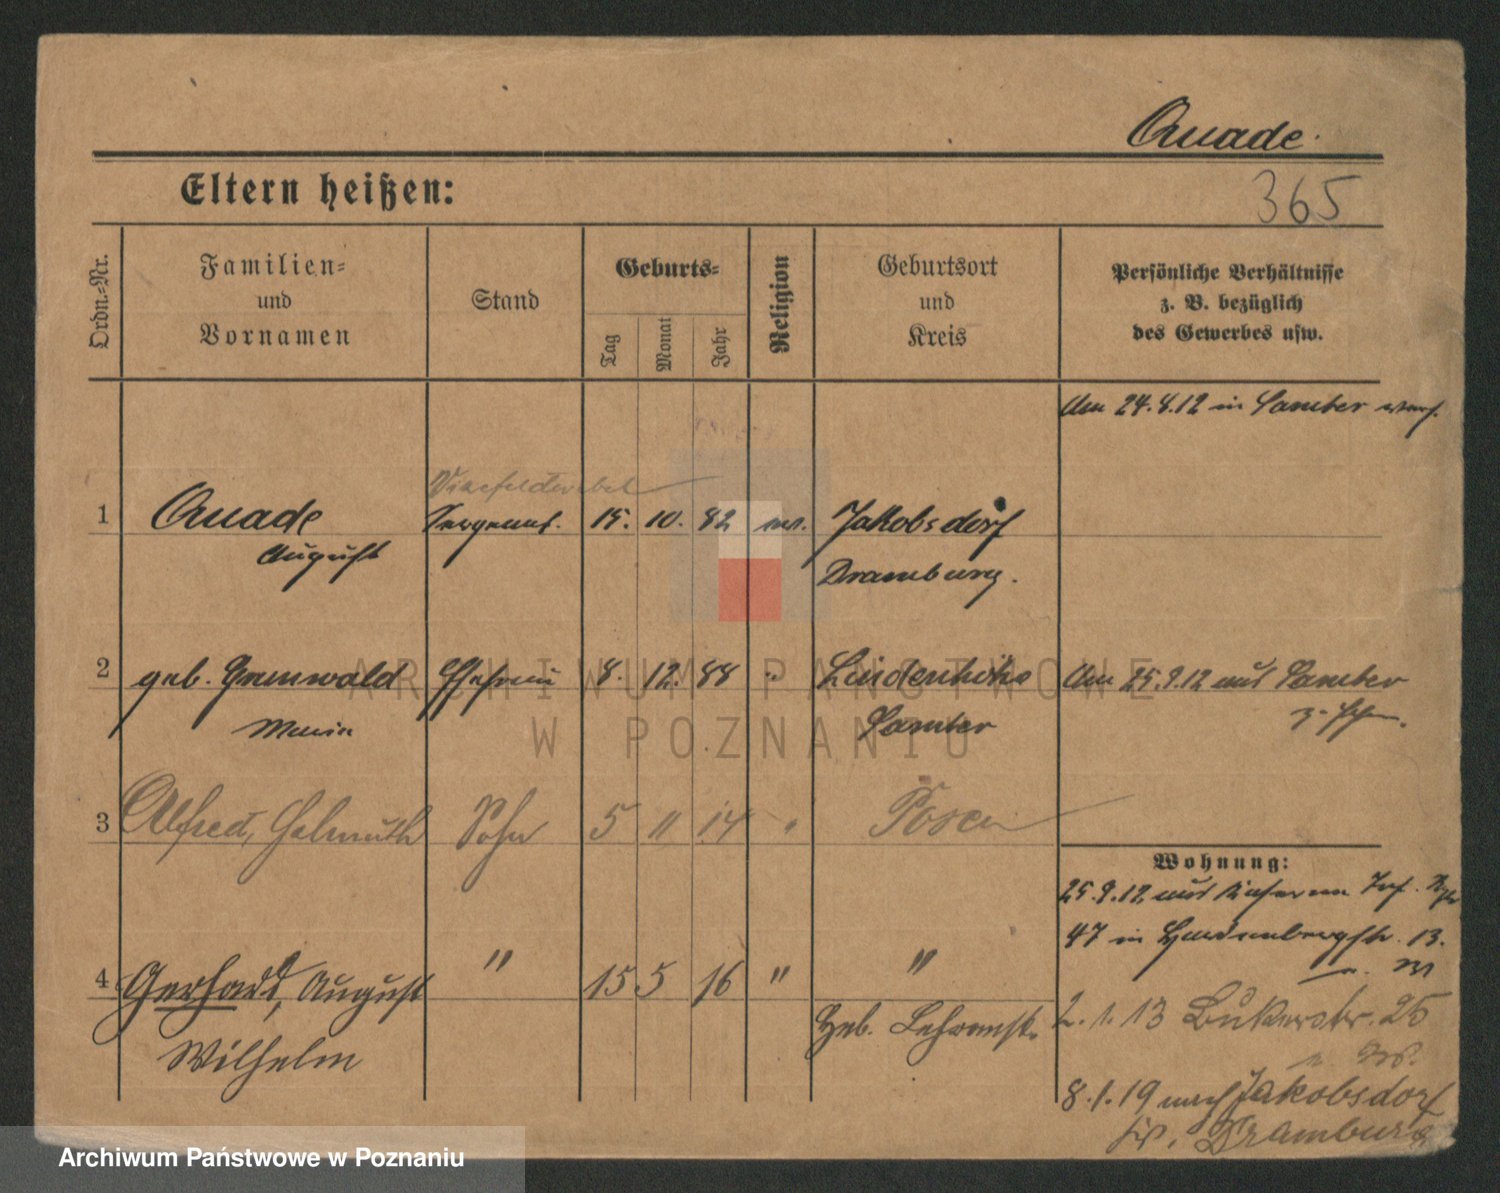 Quade.
Eltern heißen:
365
Ordn.-Nr.
Familien-
und
Vornamen
Stand
Geburts-
Tag
Monat
Jahr
Religion
Geburtsort
und
Kreis
Persönliche Verhältnisse
z. B. bezüglich
des Gewerbes usw.
Am 24.4.12 in Samter verh.
Vizefeldwebel
1 Quade Sergeant. 15. 10. 82 ev. Jakobsdorf
August Dramburg.
2 geb. Grunwald Ehefrau 8. 12. 88 " Lindenhöhe Am 25.9.12 aus Samter
Maria Samter
3 Alfred, Helmuth Sohn 5 11 14 " Posen
Wohnung:
25.9.12 aus Kaserne Inf. Rgt
47 in Hardenbergstr. 13.
4 Gerhard, August " 15 5 16 " "
Wilhelm
Heb. Lehranst.
2.1.13 Bukerstr. 25
8.1.19 nach Jakobsdorf
Krs. Dramburg
ARCHIWUM PAŃSTWOWE
W POZNANIU
Archiwum Państwowe w Poznaniu